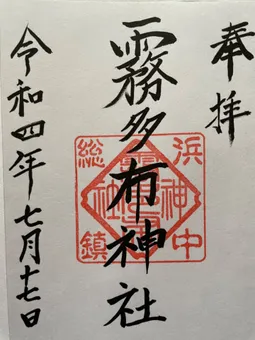 奉拝
霧多布神社
令和四年七月十七日
浜中
総鎮
神社